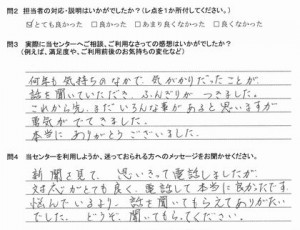 問2 担当者の対応・説明はいかがでしたか?(レ点を1か所付してください。)
☑とても良かった □良かった □あまり良くなかった □良くなかった
問3 実際に当センターへご相談、ご利用なさっての感想はいかがでしたか?
(例えば、満足度や、ご利用前後でのお気持ちの変化など)
何年も気持ちのなかで、気がかりだったことが、
話を聞いていただき、ふんぎりがつきました。
これから先、まだいろんな事があると思いますが
勇気がでてきました。
本当にありがとうございました。
問4 当センターを利用しようか、迷っておられる方へのメッセージをお聞かせください。
新聞を見て、思いきって電話しましたが、
対応がとても良く、電話して本当に良かったです。
悩んでいるより、話を聞いてもらえてありがたい
でした。どうぞ、聞いてもらってください。